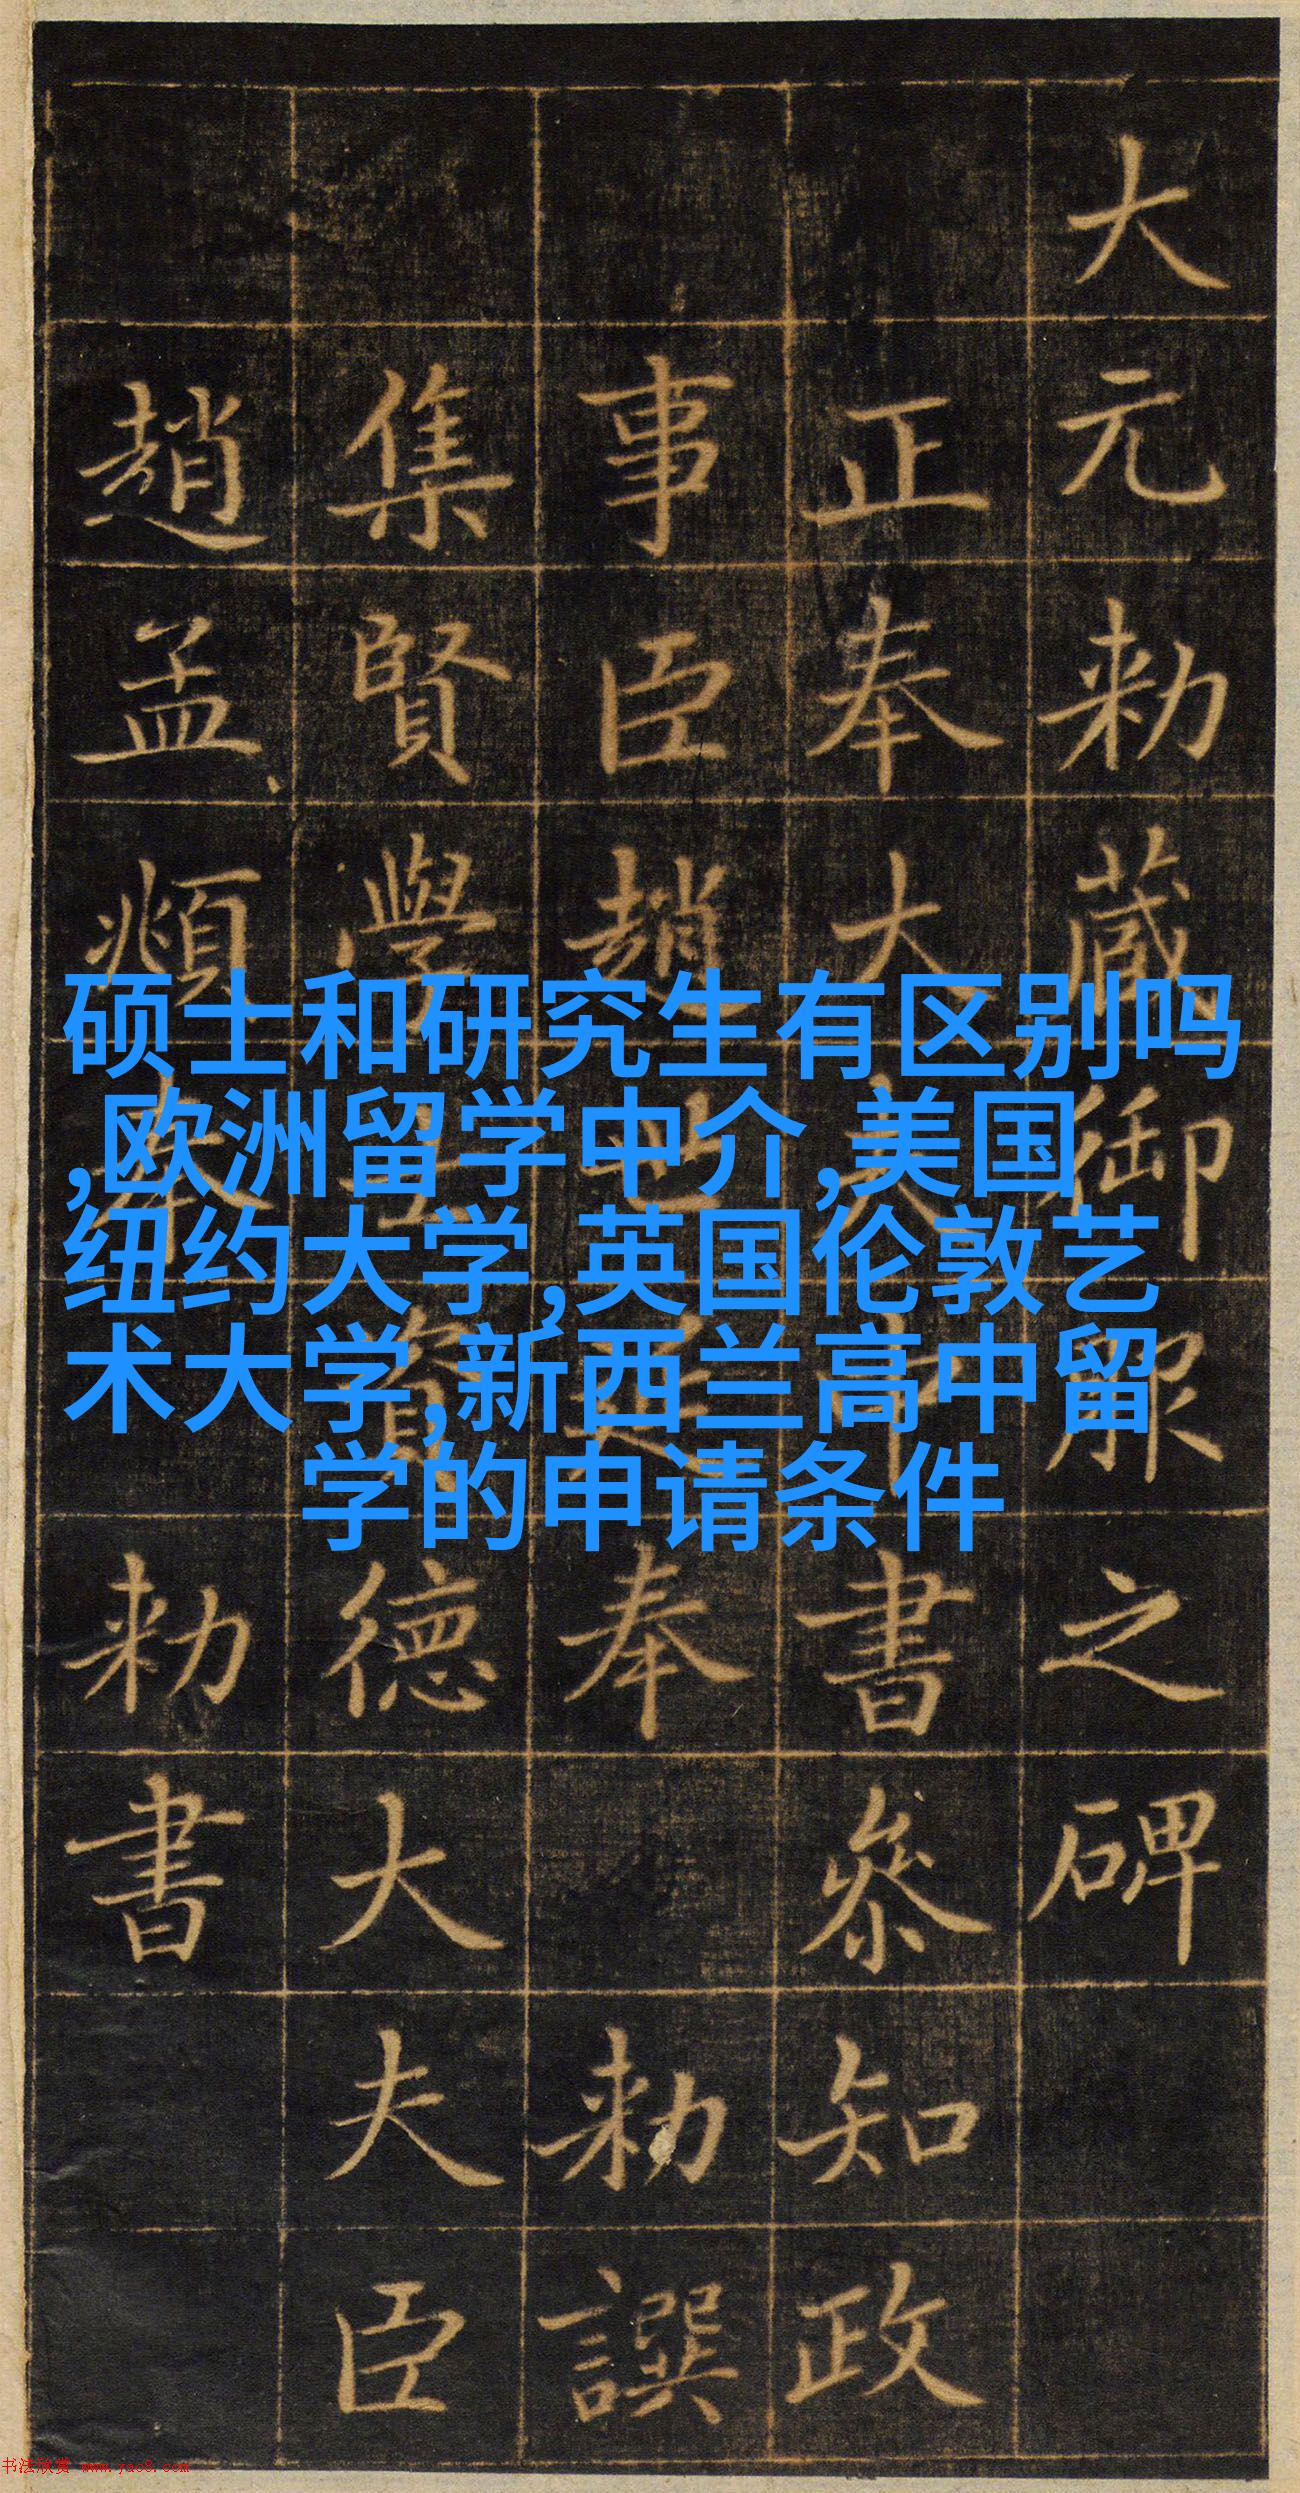 大元勑藏御服之碑
正奉大夫中書叅知政
事臣趙世延奉勑譔
集賢學士資德大夫臣
趙孟頫奉勑書
硕士和研究生有区别吗
,欧洲留学中介,美国
纽约大学,英国伦敦艺
术大学,新西兰高中留
学的申请条件
书法欣赏 www.yac8.com